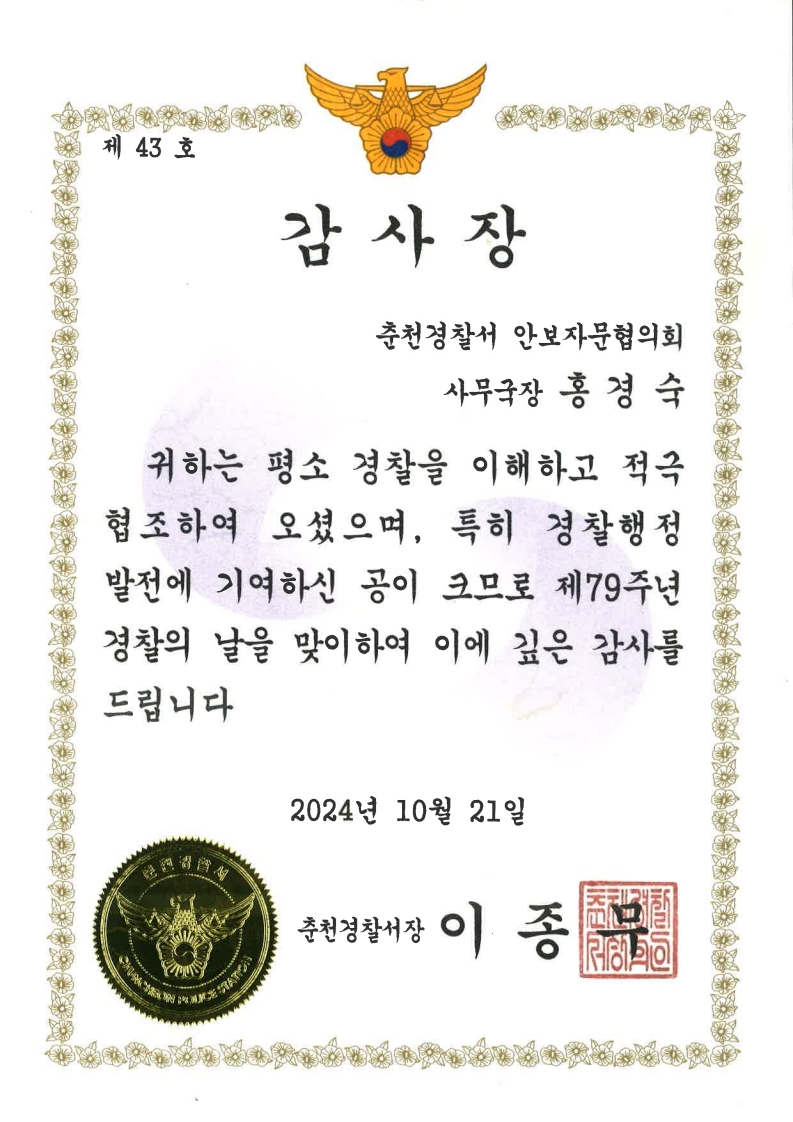 제 43 호
감 사 장
춘천경찰서 안보자문협의회
사무국장 홍 경 숙
귀하는 평소 경찰을 이해하고 적극
협조하여 오셨으며, 특히 경찰행정
발전에 기여하신 공이 크므로 제79주년
경찰의 날을 맞이하여 이에 깊은 감사를
드립니다
2024년 10월 21일
춘천경찰서
CHUNCHEON POLICE STATION
춘천경찰서장 이 종 무